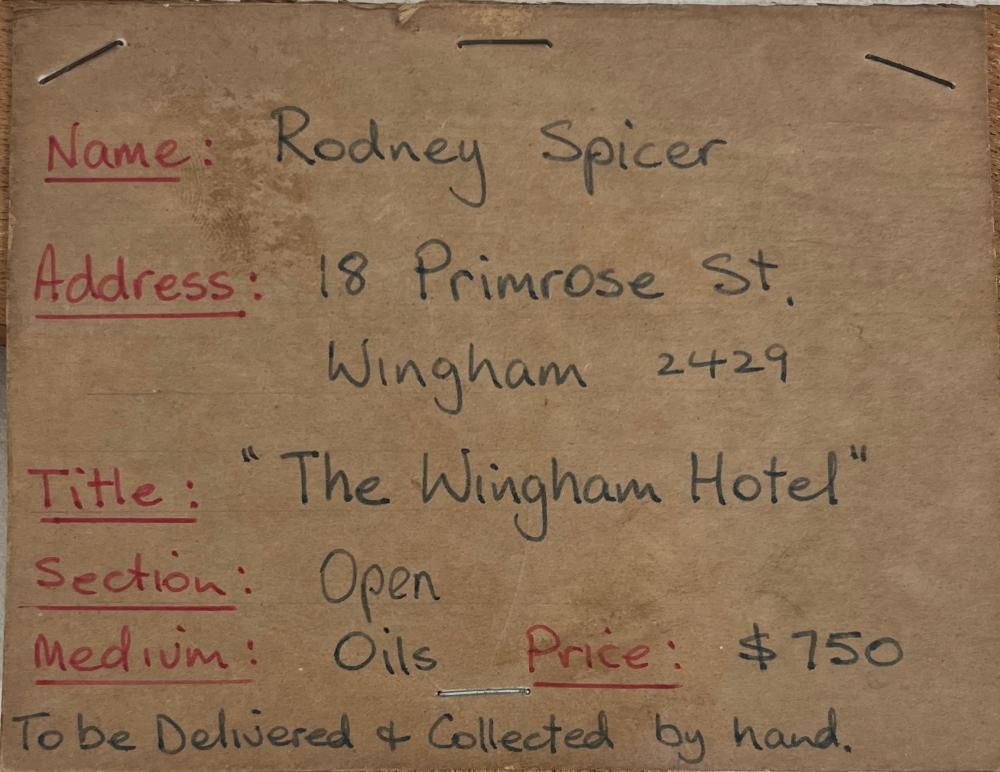 Name: Rodney Spicer
Address: 18 Primrose St.
Wingham 2429
Title: "The Wingham Hotel"
Section: Open
Medium: Oils Price: $750
To be Delivered & Collected by hand.